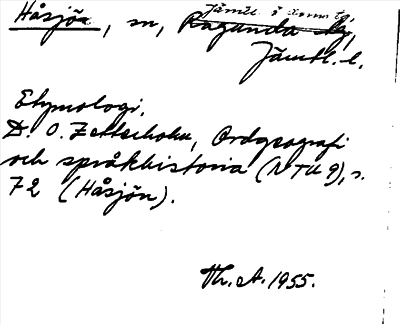 Jämtl. ö domsg.
Håsjön, sn, Ragunda tg,
Jämtl. l.
Etymologi.
D. O. Zetterholm, Ordgeografi
och språkhistoria (NTU 9), s.
72 (Håsjön).
Th. A. 1955.